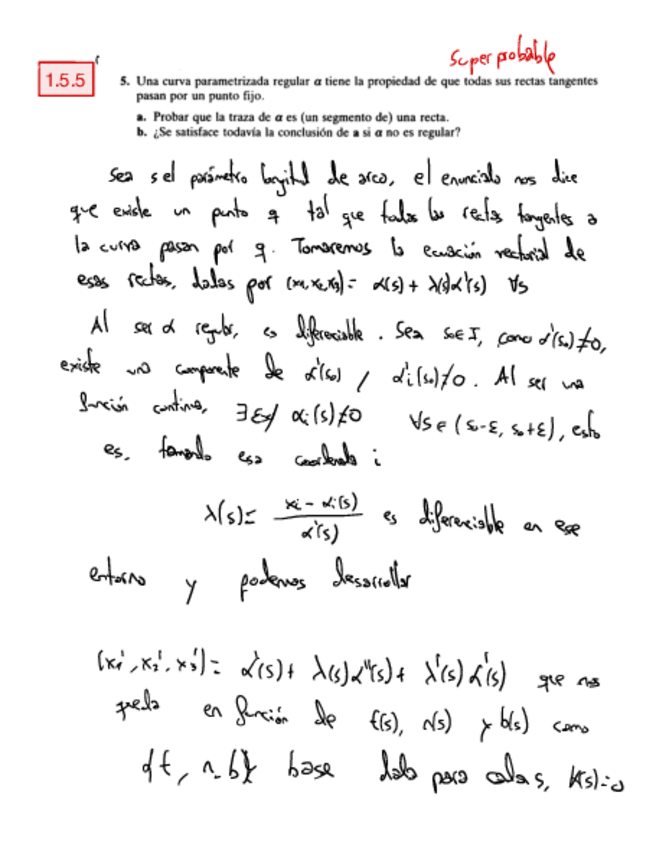 Super probable
1.5.5
5. Una curva parametrizada regular α tiene la propiedad de que todas sus rectas tangentes
pasan por un punto fijo.
a. Probar que la traza de α es (un segmento de) una recta.
b. ¿Se satisface todavía la conclusión de a si α no es regular?
Sea s el parámetro longitud de arco, el enunciado nos dice
que existe un punto q tal que todas las rectas tangentes a
la curva pasan por q. Tomaremos la ecuación vectorial de
esas rectas, dadas por (x₁,x₂,x₃) = α(s) + λ(s)α'(s) ∀s
Al ser α regular, es diferenciable. Sea s₀∈I, como α'(s₀)≠0,
existe una componente de α'(s₀) / α'ᵢ(s₀)≠0. Al ser una
función continua, ∃ε / αᵢ(s)≠0 ∀s∈(s₀-ε, s₀+ε), esto
es, tomando esa coordenada i
λ(s) = xᵢ - αᵢ(s) / α'(s) es diferenciable en ese
entorno y podemos desarrollar
(x₁', x₂', x₃') = α'(s) + λ(s)α''(s) + λ'(s)α'(s) que nos
queda en función de t(s), n(s) y b(s) como
{t, n, b} base dada para cada s, k(s)=0